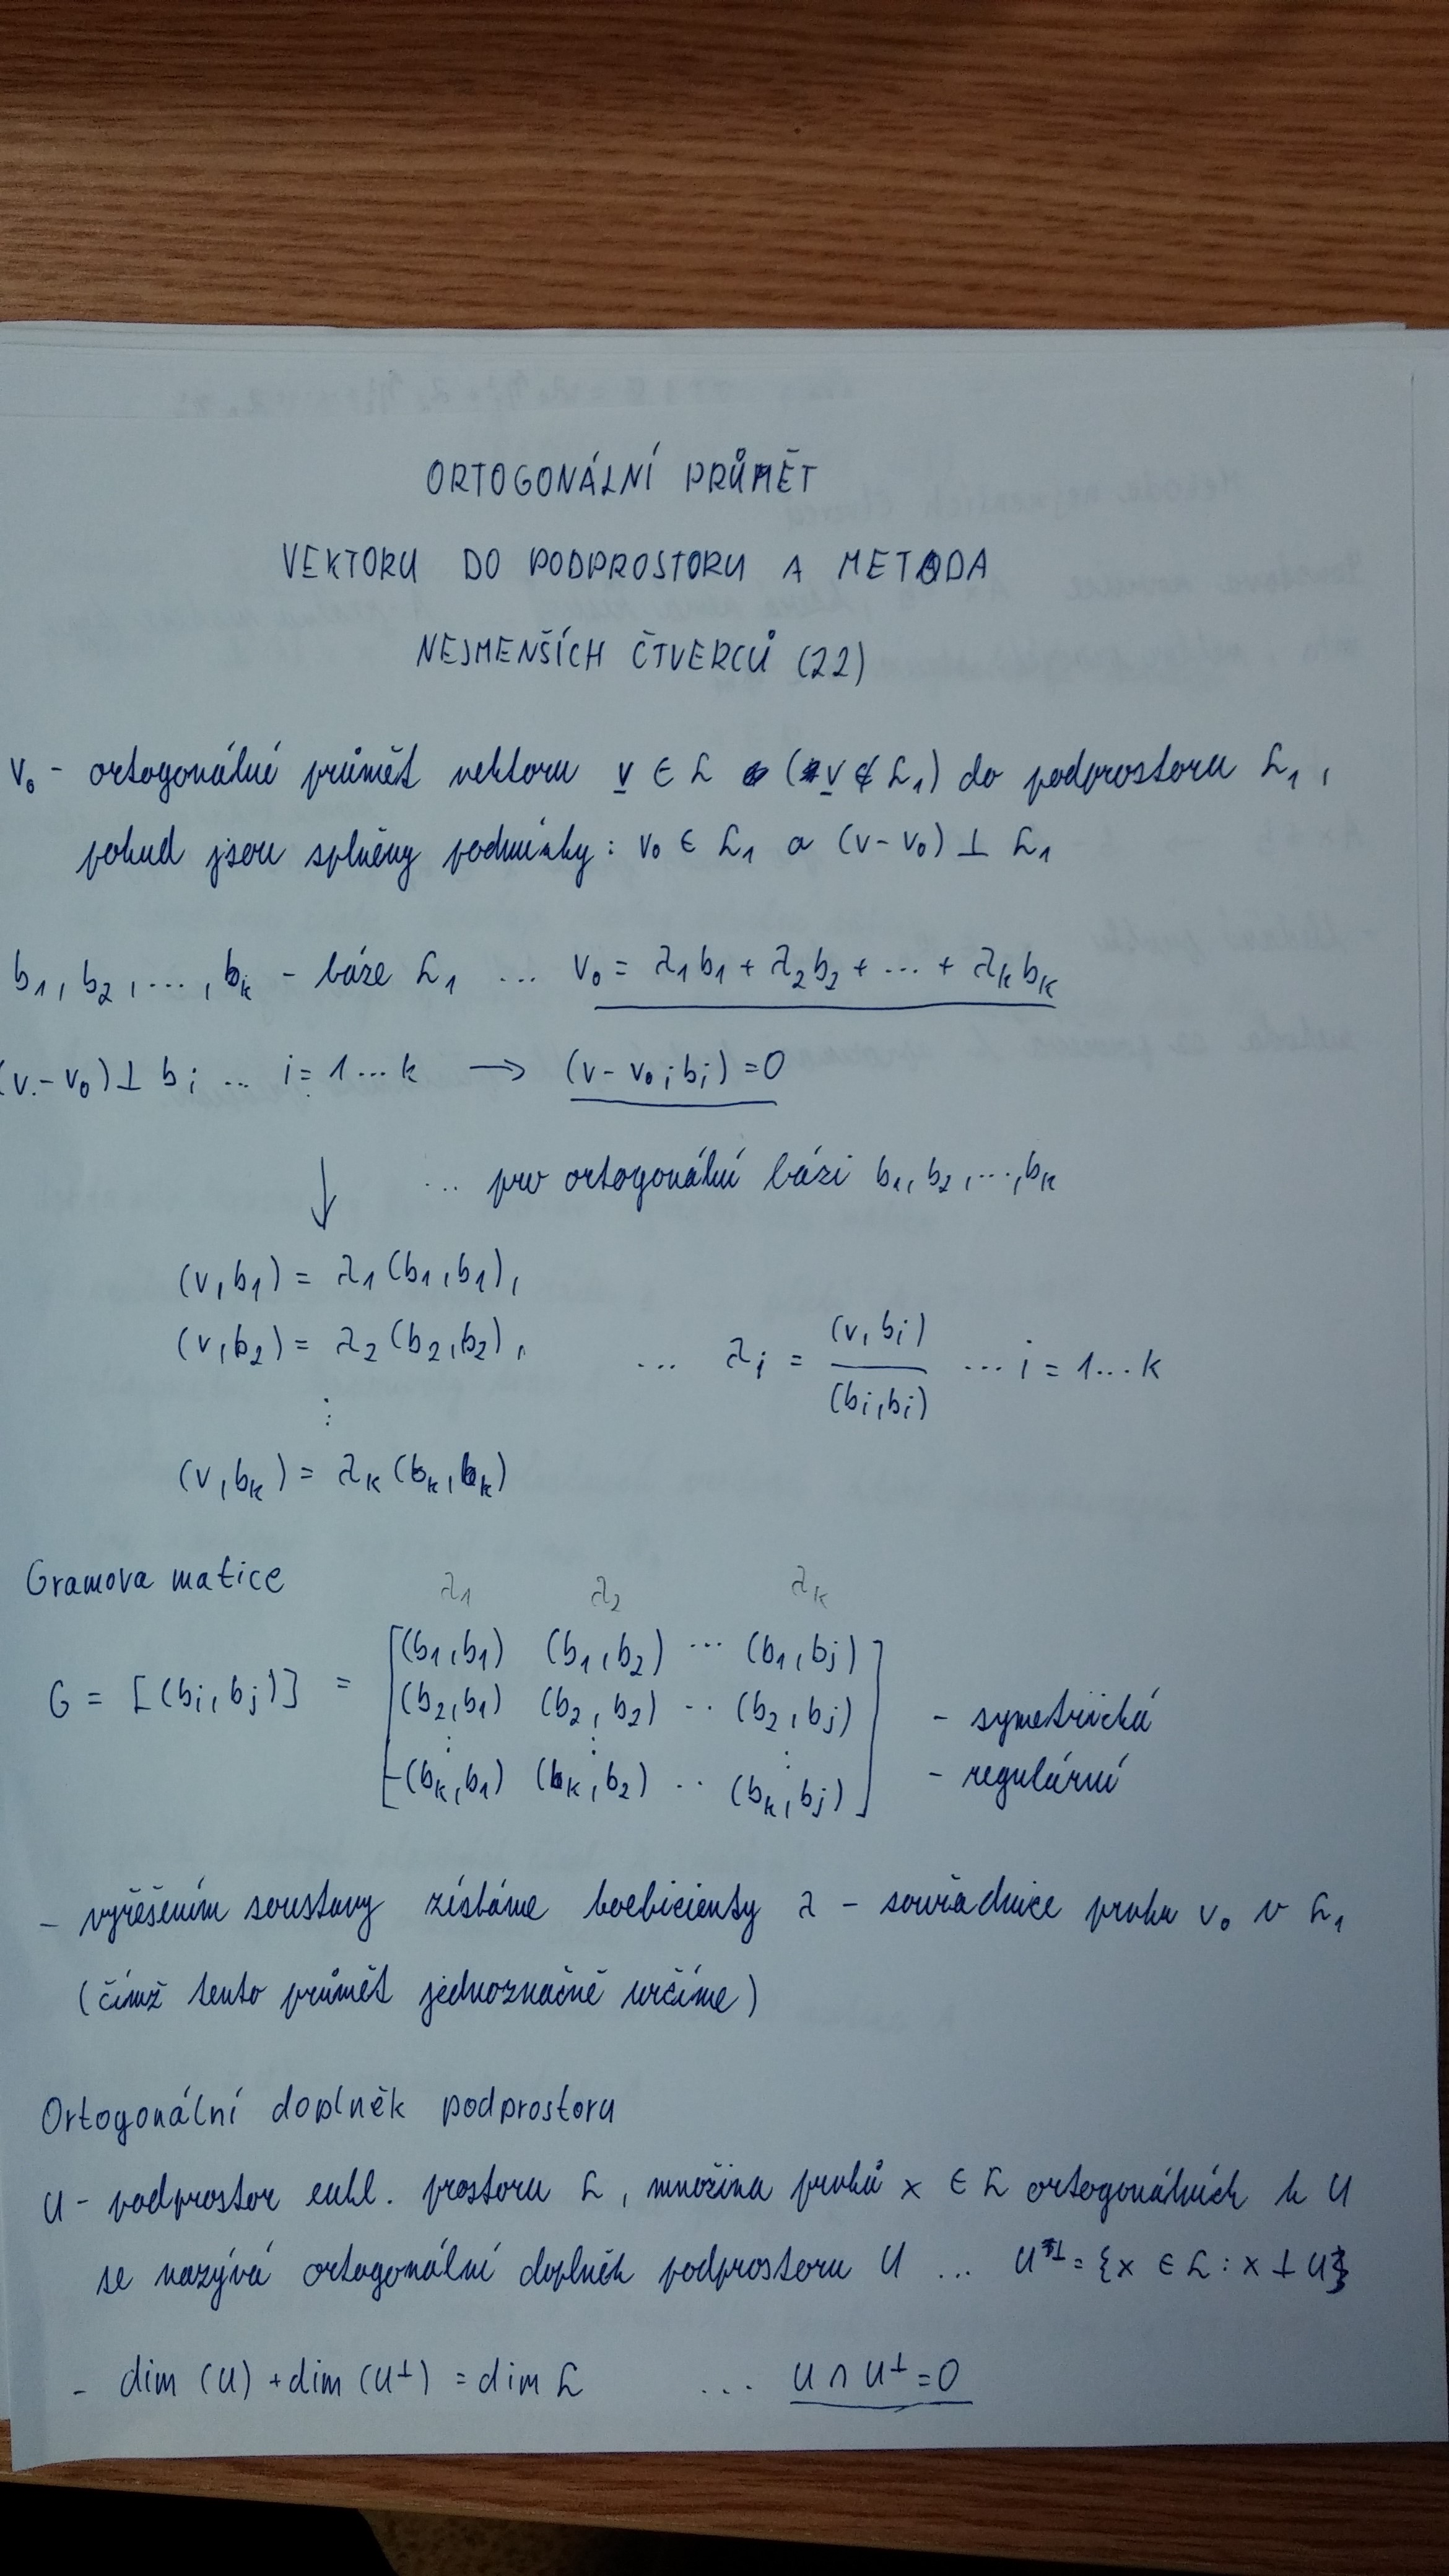 ORTOGONÁLNÍ PRŮMĚT
VEKTORU DO PODPROSTORU A METODA
NEJMENŠÍCH ČTVERCŮ (22)
v₀ - ortogonální průmět vektoru v ∈ L (v ∉ L₁) do podprostoru L₁,
pokud jsou splněny podmínky: v₀ ∈ L₁ a (v - v₀) ⊥ L₁
b₁, b₂, ..., bₖ - báze L₁ ... v₀ = λ₁b₁ + λ₂b₂ + ... + λₖbₖ
(v - v₀) ⊥ bᵢ ... i = 1...k → (v - v₀; bᵢ) = 0
↓ ... pro ortogonální bázi b₁, b₂, ..., bₖ
(v, b₁) = λ₁(b₁, b₁),
(v, b₂) = λ₂(b₂, b₂), ... λᵢ = (v, bᵢ) / (bᵢ, bᵢ) ... i = 1...k
⋮
(v, bₖ) = λₖ(bₖ, bₖ)
Gramova matice λ₁ λ₂ λₖ
G = [(bᵢ, bⱼ)] = [(b₁, b₁) (b₁, b₂) ... (b₁, bⱼ)
(b₂, b₁) (b₂, b₂) .. (b₂, bⱼ) - symetrická
⋮ ⋮ ⋮
(bₖ, b₁) (bₖ, b₂) .. (bₖ, bⱼ)] - regulární
- vyřešením soustavy získáme koeficienty λ - souřadnice prvku v₀ v L₁
(čímž tento průmět jednoznačně určíme)
Ortogonální doplněk podprostoru
U - podprostor eukl. prostoru L, množina prvků x ∈ L ortogonálních k U
se nazývá ortogonální doplněk podprostoru U ... U⊥ = {x ∈ L : x ⊥ U}
- dim (U) + dim (U⊥) = dim L ... U ∩ U⊥ = 0